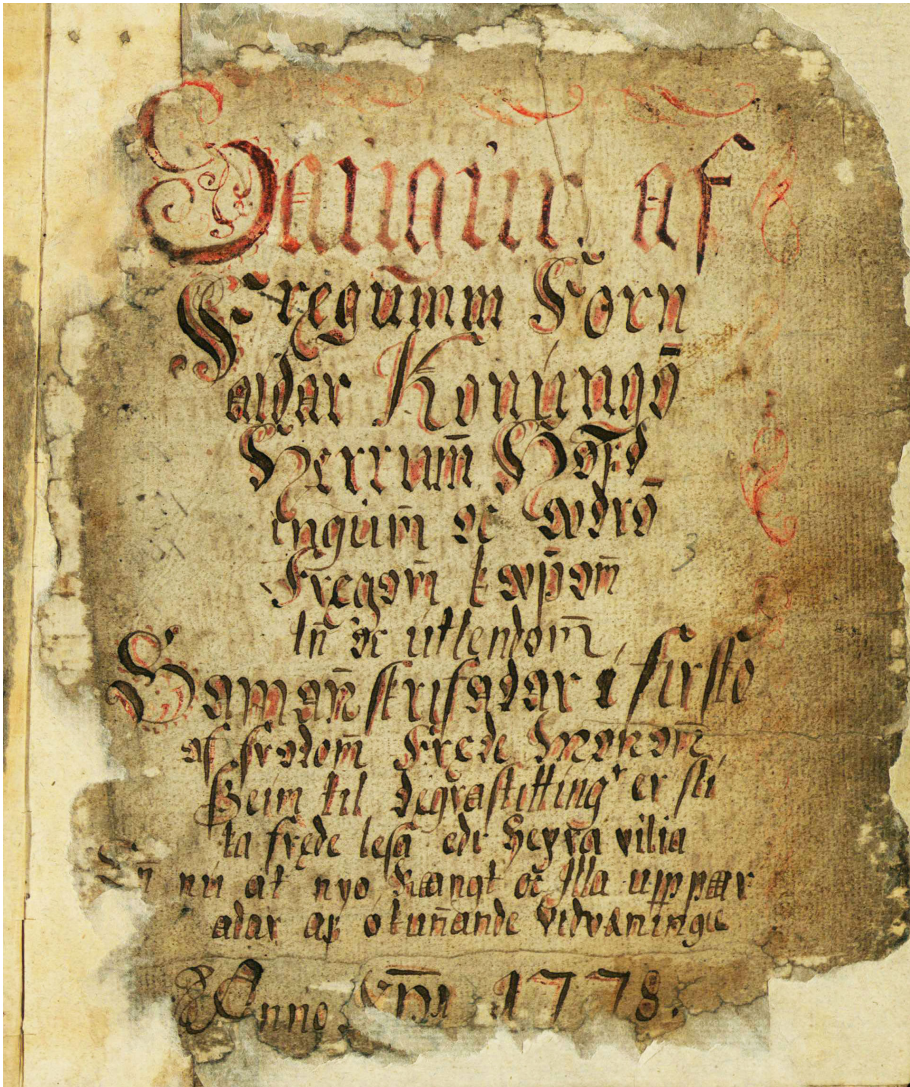 Saugur af
Fręgum̄m Forn
aldar Konungō
Herrum̄ Höfd
ingium̄ oc ødrō
Fręgom̄ køp̄om̄
In̄ oc utlendom̄
Saman̄ skrifadar i firsto
af frodom̄ Fræde Monom̄
Þeim til Degrastitting er sli
ka fręde lesa edr Heyra vilia
nu at nyo Rangt oc Illa upp par
adar af okun̄ande Vidvaninge
Anno 1778.